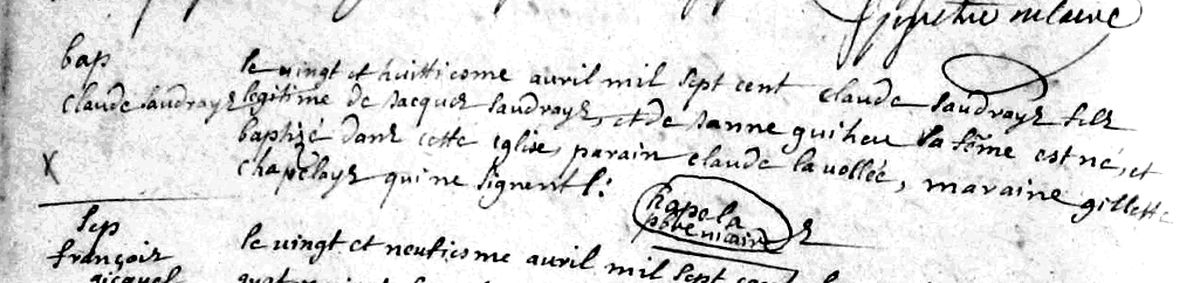 bap
claude saudrays
le vingt et huittiesme avril mil sept cent claude saudrays fils
legitime de Jacques saudrays, et de Janne guiheu sa fême est né, et
baptizé dans cette eglise, parain claude lavollée, maraine gillette
chapelays qui ne signent
X
Sep
françois
gicquel
le vingt et neufiesme avril mil sept cent